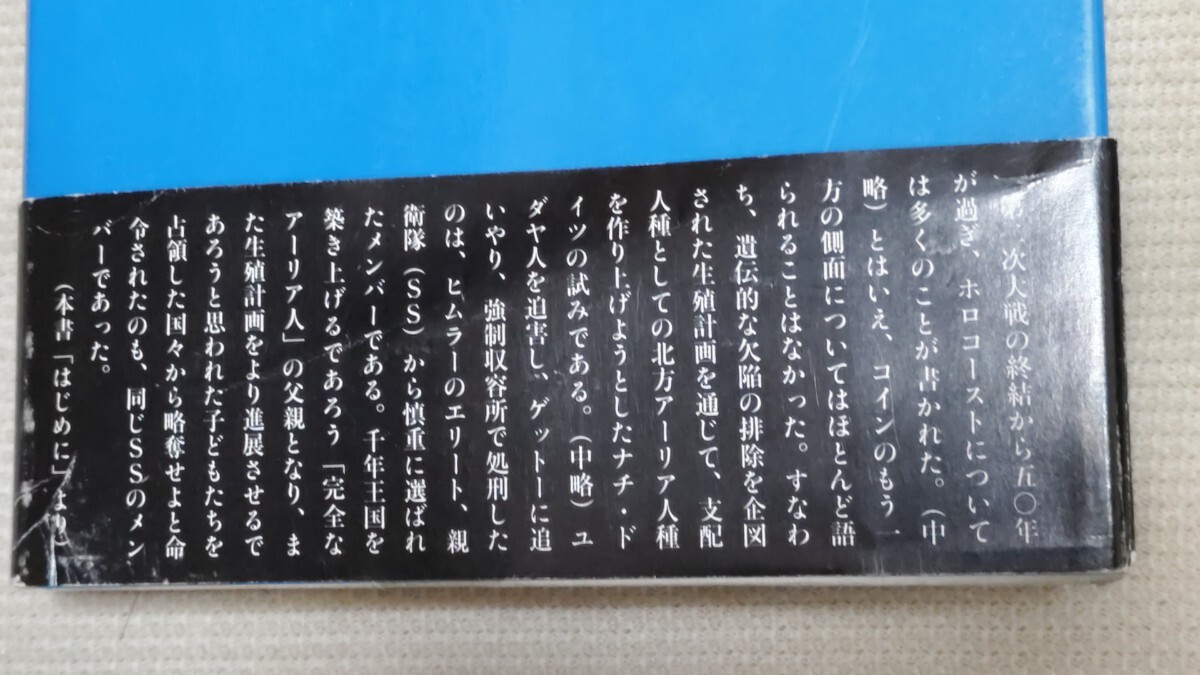 第二次大戦の終結から五〇年
が過ぎ、ホロコーストについて
は多くのことが書かれた。（中
略）とはいえ、コインのもう一
方の側面についてはほとんど語
られることはなかった。すなわ
ち、遺伝的な欠陥の排除を企図
された生殖計画を通じて、支配
人種としての北方アーリア人種
を作り上げようとしたナチ・ド
イツの試みである。（中略）ユ
ダヤ人を迫害し、ゲットーに追
いやり、強制収容所で処刑した
のは、ヒムラーのエリート、親
衛隊（ＳＳ）から慎重に選ばれ
たメンバーである。千年王国を
築き上げるであろう「完全な
アーリア人」の父親となり、ま
た生殖計画をより進展させるで
あろうと思われた子どもたちを
占領した国々から略奪せよと命
令されたのも、同じＳＳのメン
バーであった。
（本書「はじめに」より）